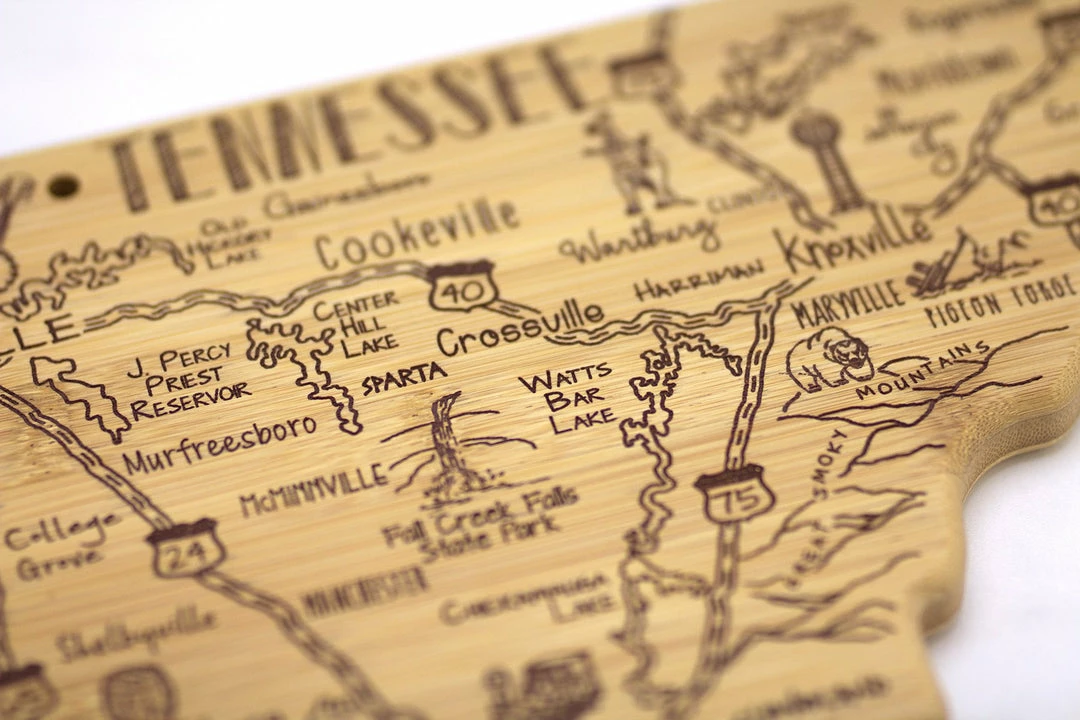 TENNESSEE
Gainesboro
OLD
HICKORY
LAKE
Cookeville
Wartburg
CLINTON
Knoxville
HARRIMAN
40
40
LE
CENTER
HILL
LAKE
Crossville
MARYVILLE
PIGEON FORGE
J. PERCY
PRIEST
RESERVOIR
SPARTA
WATTS
BAR
LAKE
GREAT SMOKY MOUNTAINS
Murfreesboro
McMINNVILLE
75
Fall Creek Falls
State Park
College
Grove
24
MANCHESTER
CHICKAMAUGA
LAKE
Shelbyville
Morristown